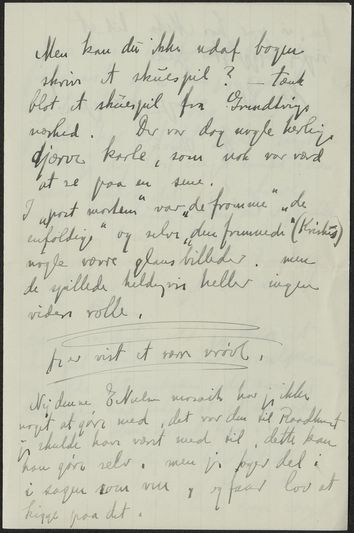 Men kan du ikke udaf bogen
skrive et skuespil? – tænk
blot et skuespil fra Grundtvigs
nærhed. Der var dog nogle herlige
djærve karle, som nok var værd
at se paa en scene.
I „post mortem" var „de fromme" „de
enfoldige" og selve „den fremmede" (Kristus)
nogle værre glansbilleder. men
de spillede heldigvis heller ingen
videre rolle.
er vist et værre vrøvl.
Nej denne E Nielsen mosaik har jeg ikke
noget at gøre med, det var den til Raadhuset
jeg skulde have været med til, dette kan
han gøre selv. men jeg tager del i
i sagen som ven, og faar lov at
kigge paa det.